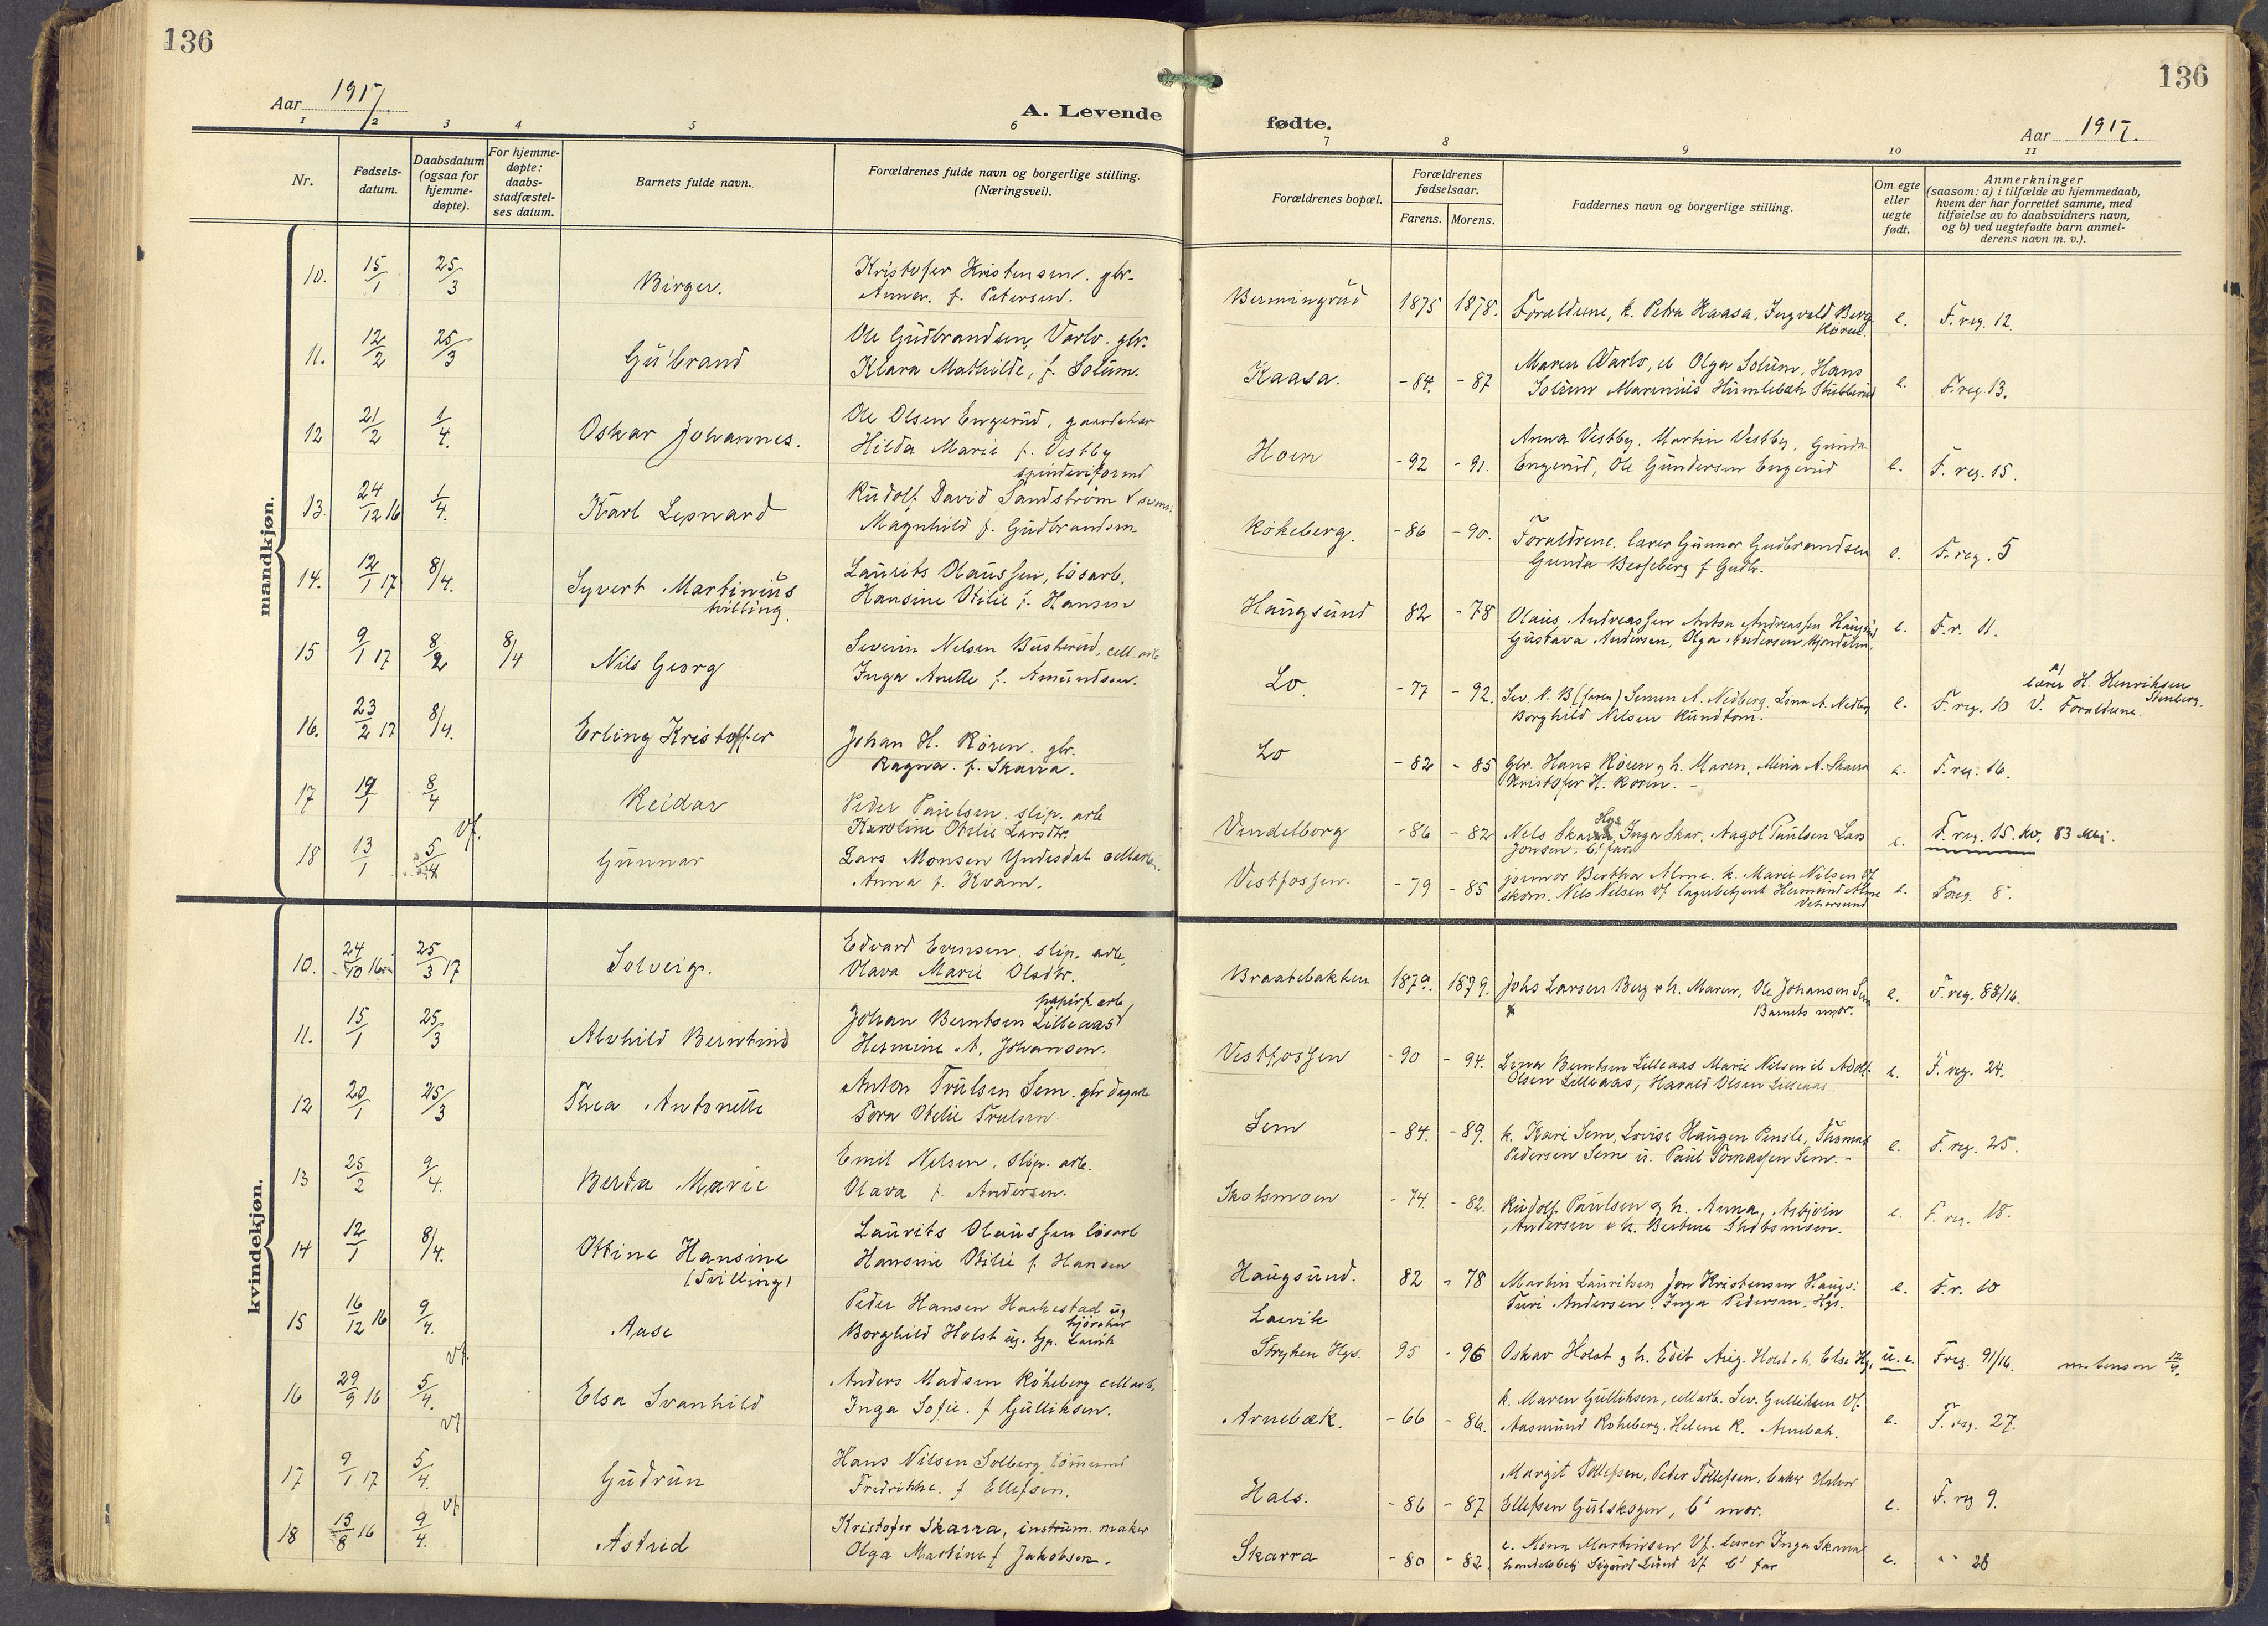 136
136
Aar 1917
A. Levende fødte.
Aar 1917.
1 2 3 4 5 6 7 8 9 10 11
Nr.
Fødsels-
datum.
Daabsdatum
(ogsaa for
hjemme-
døpte).
For hjemme-
døpte:
daabs-
stadfæstel-
ses datum.
Barnets fulde navn.
Forældrenes fulde navn og borgerlige stilling.
(Næringsvei).
Forældrenes bopæl.
Forældrenes
fødselsaar.
Farens. Morens.
Faddernes navn og borgerlige stilling.
Om egte
eller
uegte
født.
Anmerkninger
(saasom: a) i tilfælde av hjemmedaab,
hvem der har forrettet samme, med
tilføielse av to daabsvidners navn,
og b) ved uegtefødte barn anmel-
derens navn m. v.).
mandkjøn.
10. 15/1 25/3 Birger. Kristofer Kristensen. gbr. 1875 1878. Forældrene, k. Petra Kaasa, Ingvald Berg e. F. reg. 12.
Anna. f. Petersen.
11. 12/2 25/3 Gu'brand Ole Gudbrandsen Varlo. gbr. Kaasa. -84. -87 Maren Varlo, Olga Solum, Hans e. F. reg. 13.
Klara Mathilde, f. Solum. Solum Marinius Himlebæk
12 21/2 1/4. Oskar Johannes. Ole Olsen Engerud, Hoen -92 -91. Anna Vestby, Martin Vestby, Gunda e. F. reg. 15.
Hilda Marie f. Vestby Engerud, Ole Gundersen Engerud
13. 24/12 16 1/4. Karl Leonard Rudolf David Sandström Røkeberg. -86 -90. Forældrene. lærer Gunnar Gudbrandsen e. F. reg. 5
Magnhild f. Gudbrandsen Gunda Besseberg f. Gudbr.
14. 12/1 17 8/4. Syvert Martinius Laurits Olaussen, løsarb. Haugsund 82 -78 Olaus Andreassen Anton Andreassen e. F. r. 11.
tvilling. Hansine Otilie f. Hansen Gustava Andersen, Olga Andersen
15 9/1 17 8/2 8/4 Nils Georg Severin Nilsen Buskerud, cell. arb Lo. -77 -92. Sev. N. B (faren) Simen A. Nedberg. e. F. reg. 10 a) lærer H. Henriksen Stenberg.
Inga Anette f. Amundsen. Borghild Nilsen Rundtom. V. Forældrene.
16. 23/2 17 8/4. Erling Kristoffer Johan H. Røren. gbr. Lo -82 -85 Gbr. Hans Røren g h. Maren, Mina A. Skarra e. F. reg. 16.
Ragna. f. Skarra. Kristofer H. Røren.
17 19/1 8/4 Reidar Peder Paulsen. slip. arb Vendelborg -86 -82 Nils Inga Skar, Aagot Paulsen Lars e. F. reg. 15. kv. 83
Karoline Otilie Larsdtr. Jonsen. b' far
18 13/1 5/4 Vf. Gunnar Lars Monsen Yndesdal cellarb. Vestfossen. -79 -85 jormor Bertha Alme. k. Marie Nilsen Vf. e. F. reg. 8.
Anna f. Kvam. skom. Nils Nilsen Vf lagerbetjent Hermund Alme
kvindekjøn.
10. 24/10 16 25/3 17 Solveig. Edvard Evensen. slip. arb. Braatebakken 1879. Johs Larsen Berg & h. Maren, Ole Johansen Sem e. F. reg. 88/16.
Olava Marie Olsdtr. Barnets mor.
11. 15/1 25/3 Alvhild Berntine papirf. arb
Johan Berntsen Lilleaas Vestfossen -90 -94. Lina Berntsen Lilleaas Marie Nilsen Adolf e. F. reg. 24.
Hermine A. Johansen. Olsen Lilleaas, Harald Olsen Lilleaas.
12 20/1 25/3 Thea Antonette Anton Trulsen Sem. Sem -84. -89. k. Kari Sem, Lovise Haugen Pensle, Thomas e. F. reg. 25.
Tora Otelie Trulsen. Pedersen Sem u. Paul Tomassen Sem.
13 25/2 9/4. Berta Marie Emil Nilsen. slip. arb. Skotsmoen -74. -82. Rudolf Paulsen g h. Anna, Asbjørn e. F. reg. 18.
Olava f. Andersen. Andersen & h. Bertine Skotsmoen.
14 12/1 8/4. Ottine Hansine Laurits Olaussen løsarb Haugsund. 82 -78 Martin Lauritsen Jon Kristensen Haugs: e. F. r. 10
(Tvilling) Hansine Otilie f. Hansen Turi Andersen. Inga Pedersen. Hgs.
15 16/12 16 9/4. Aase Peder Hansen Haakestad ug Larvik
Borghild Holst ug. Stryken Hgs. 95 -96 Oskar Holst g h. Edit Aug. Holst & h. Else Hgs. u.e. F. reg. 91/16.
16 29/9 16 5/4. Vf. Elsa Svanhild Anders Madsen Røkeberg cellarb. Arnebæk. -66 -86. k. Maren Gulliksen, cellarb. Sev. Gulliksen Vf. e. F. reg. 27.
Inga Sofie. f Gulliksen. Aasmund Røkeberg. Helene R. Arnebæk.
17 9/1 17 5/4. Vf Gudrun Hans Nilsen Solberg, Hals. -86 -87 Margit Tollefsen, Peter Tollefsen, baker Halvor e. F. reg 9.
Fredrikke. f Ellefsen. Ellefsen Gulskogen, b' mor.
18 13/8 16 9/4. Vf. Astrid Kristofer Skarra, instrum. maker Skarra -80 -82. Martinsen Vf. lærer Inga Skarra e. " " 28
Olga Martine f Jakobsen. handelsbetj Sigurd Lund Vf b' far